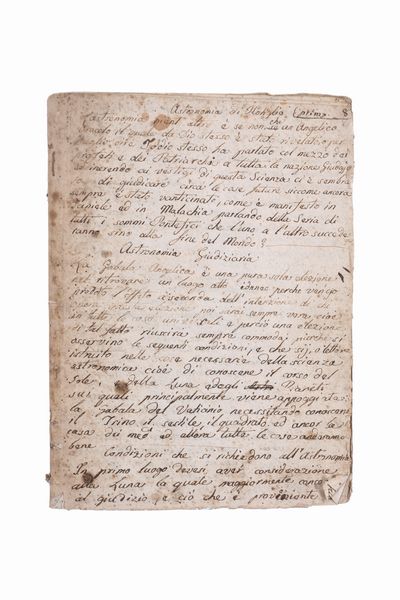 Astronomia di Rohylio (primo 8
L'astronomia nient'altro è se non che un Angelico
Oracolo il quale da Dio stesso è stato rivelato per
meglio dire Iddio stesso ha parlato col mezzo dei
Profeti e dei Patriarchi a tutta la nazione Giudaja
inerendo ai vestigi di questa Scienza ci è sembra
di giudicare circa le case future siccome ancora
sempre è stato vanticinato, come è manifesto in
Daniele ed in Malachia parlando della Seria di
tutti i sommi Pontefici che l'uno a l'altro succede
ranno sino alla fine del Mondo
Astronomia Giudiziaria
La Gabala Angelica è una pura sola elezione
nel ritrovare un luogo atto idoneo perche venga
prodoto l'effetto a seconda dell'intenzione di
questa elezione noi sarà sempre vera cioè
in tutti le case e perciò una elezione
di tal fatto riuscirà sempre commoda, pacchè si
osservino le seguenti condizioni, e che sij, o lettore
istruito nelle cose necessarie della scienza
astronomica cioè di conoscere il corso del
Sole della Luna e degli Pianeti
sui quali principalmente viene appoggiata
la gabala del Vaticinio necessitando conoscere
il Trino il sestile il quadrato ed ancor la
casa dei med ed allora tutte le case andranno
bene
Condizioni che si richiedono all'Astronomia
In primo luogo devesi aver considerazione
alla Luna la quale maggiormente conco
al giudizio, e ciò che è proveniente